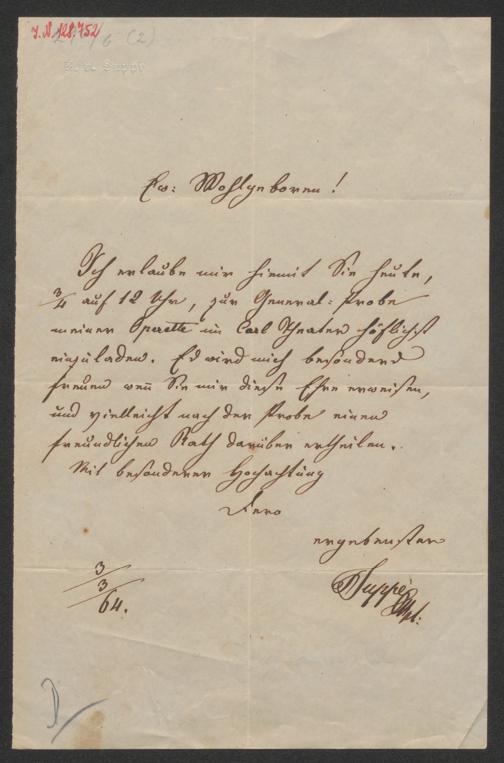 J.N. 128.752
(2)
Franz Suppé
Ew: Wohlgeboren!
Ich erlaube mir hiemit Sie heute,
3/4 auf 12 Uhr, zur General-Probe
meiner Operette im Carl Theater höflichst
einzuladen. Es wird mich besonders
freuen wen̅ Sie mir diese Ehre erweisen,
und vielleicht nach der Probe einen
freundlichen Rath darüber ertheilen.
Mit besonderer Hochachtung
Dero
ergebenster
Suppé
3/3 64.